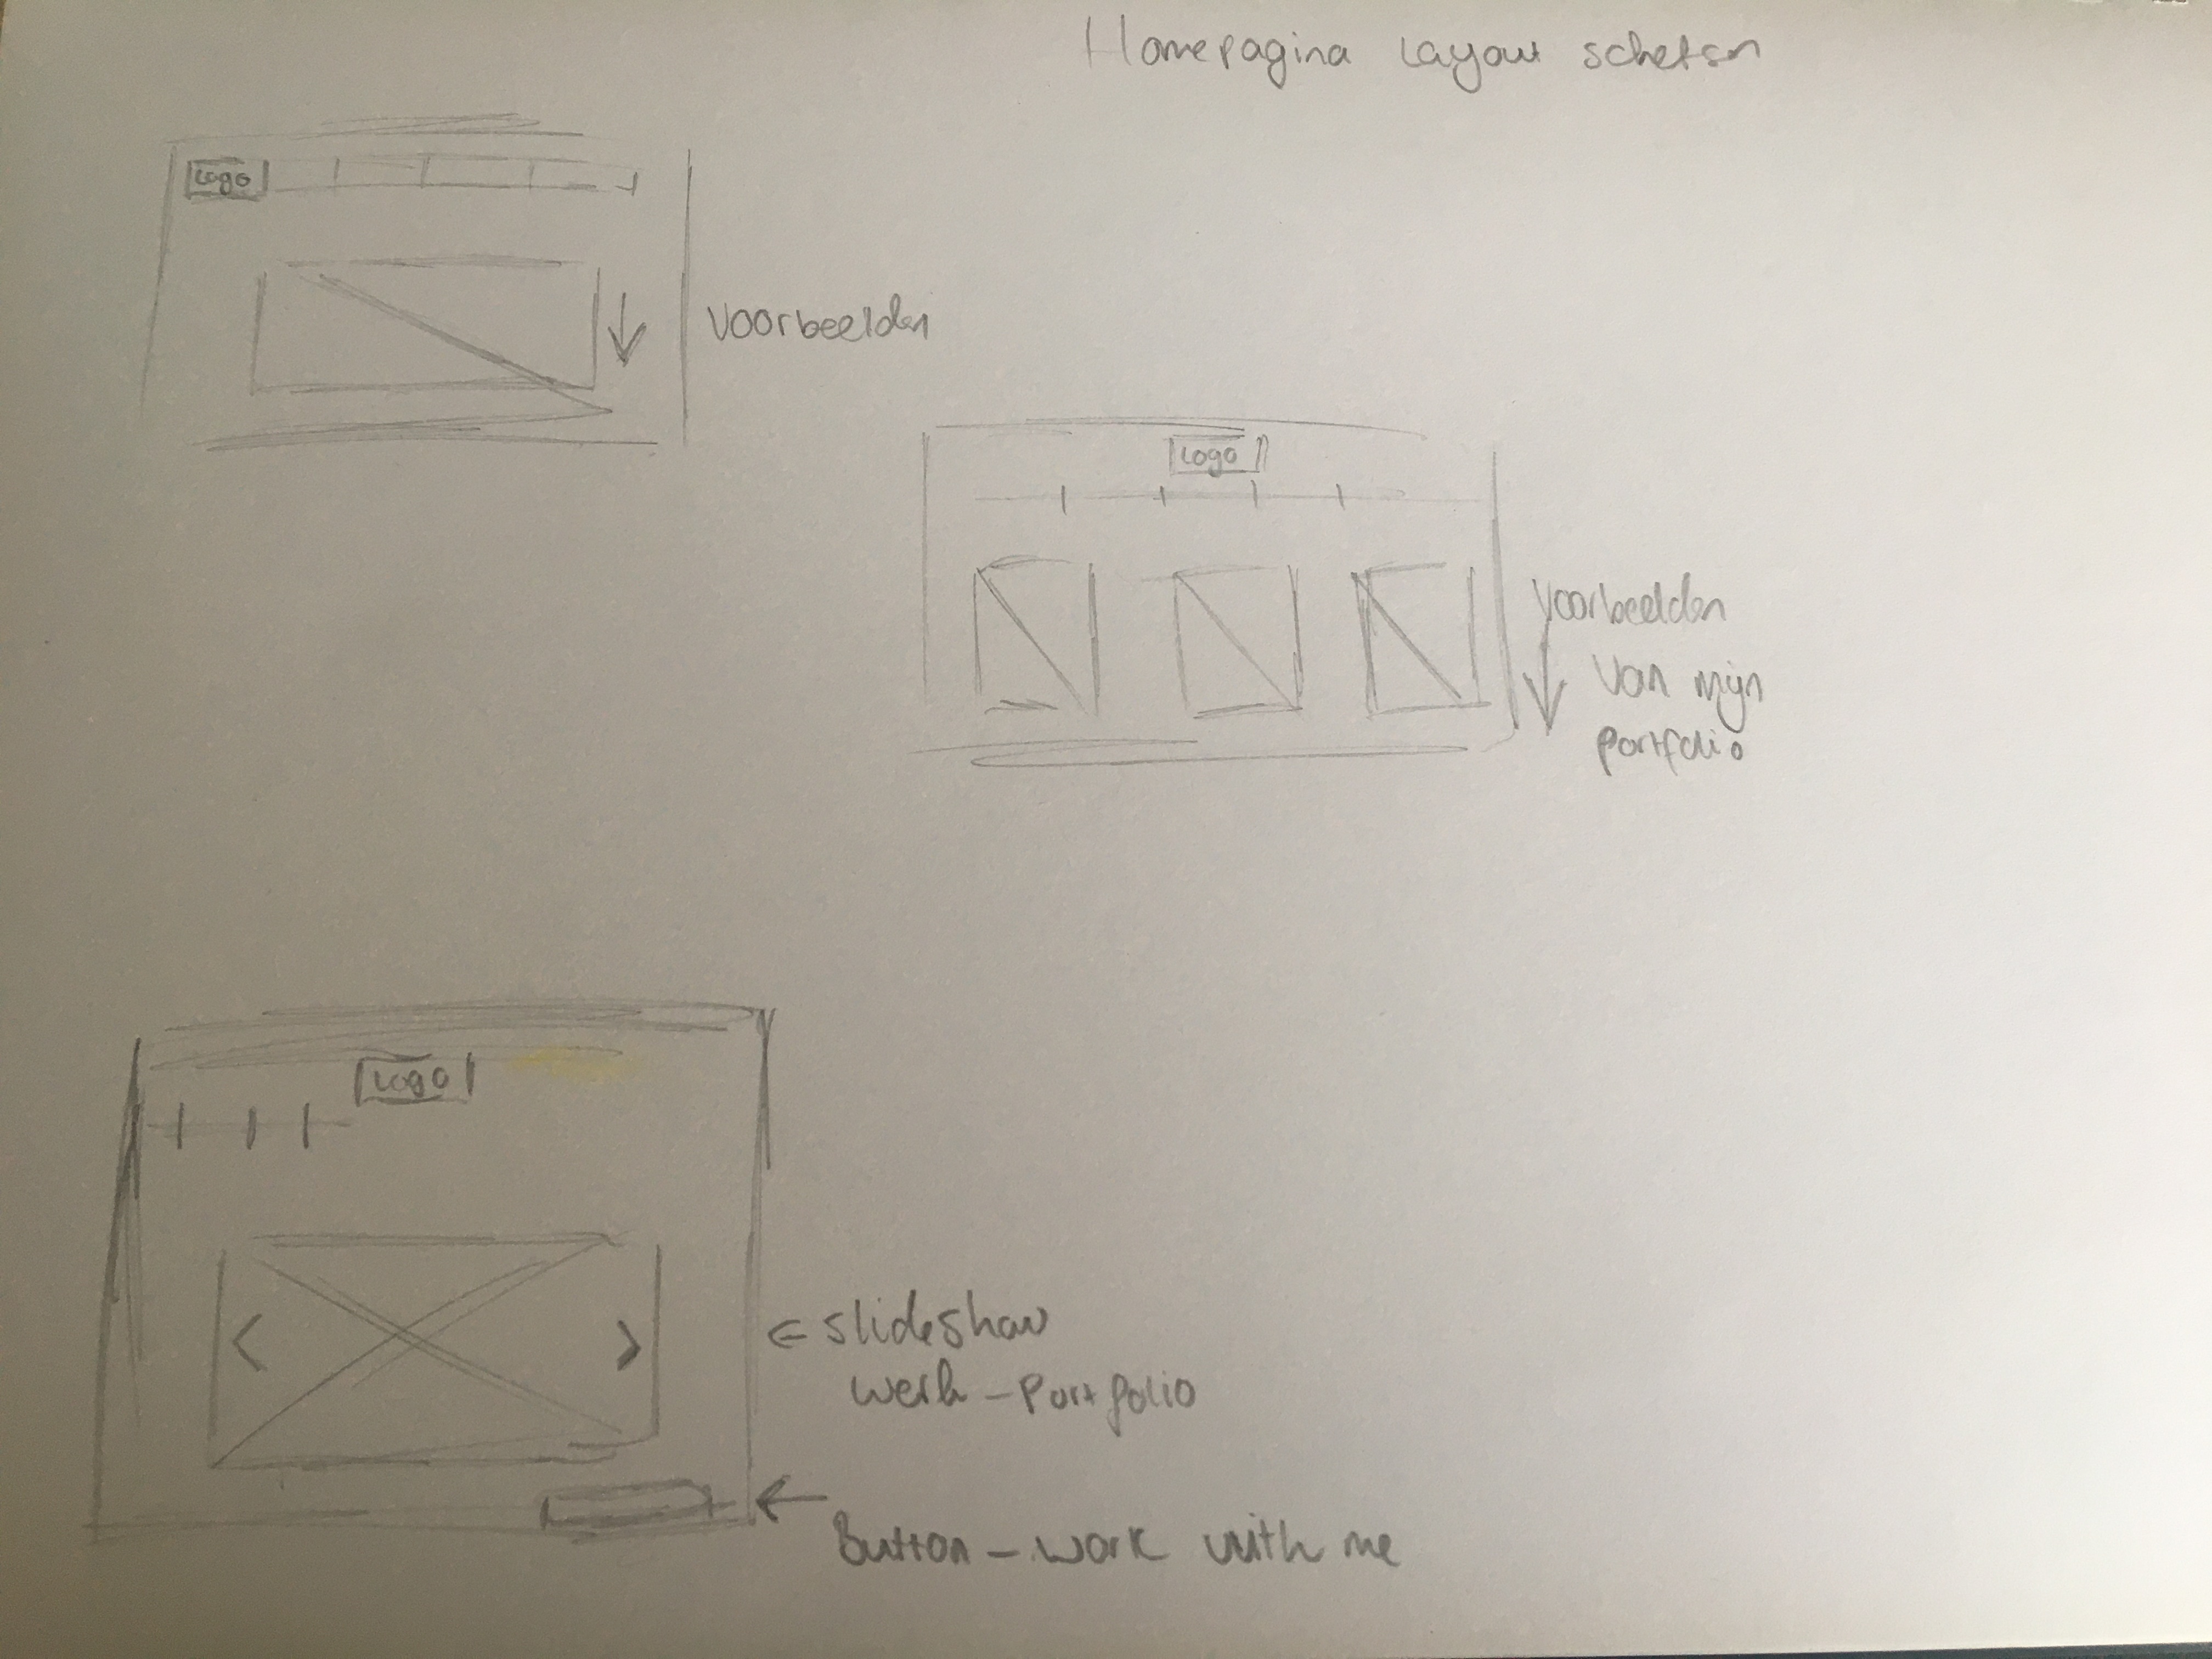 Homepagina layout schetsen
Logo
voorbeelden
Logo
Voorbeelden
van mijn
portfolio
Logo
slideshow
werk-Portfolio
button-work with me